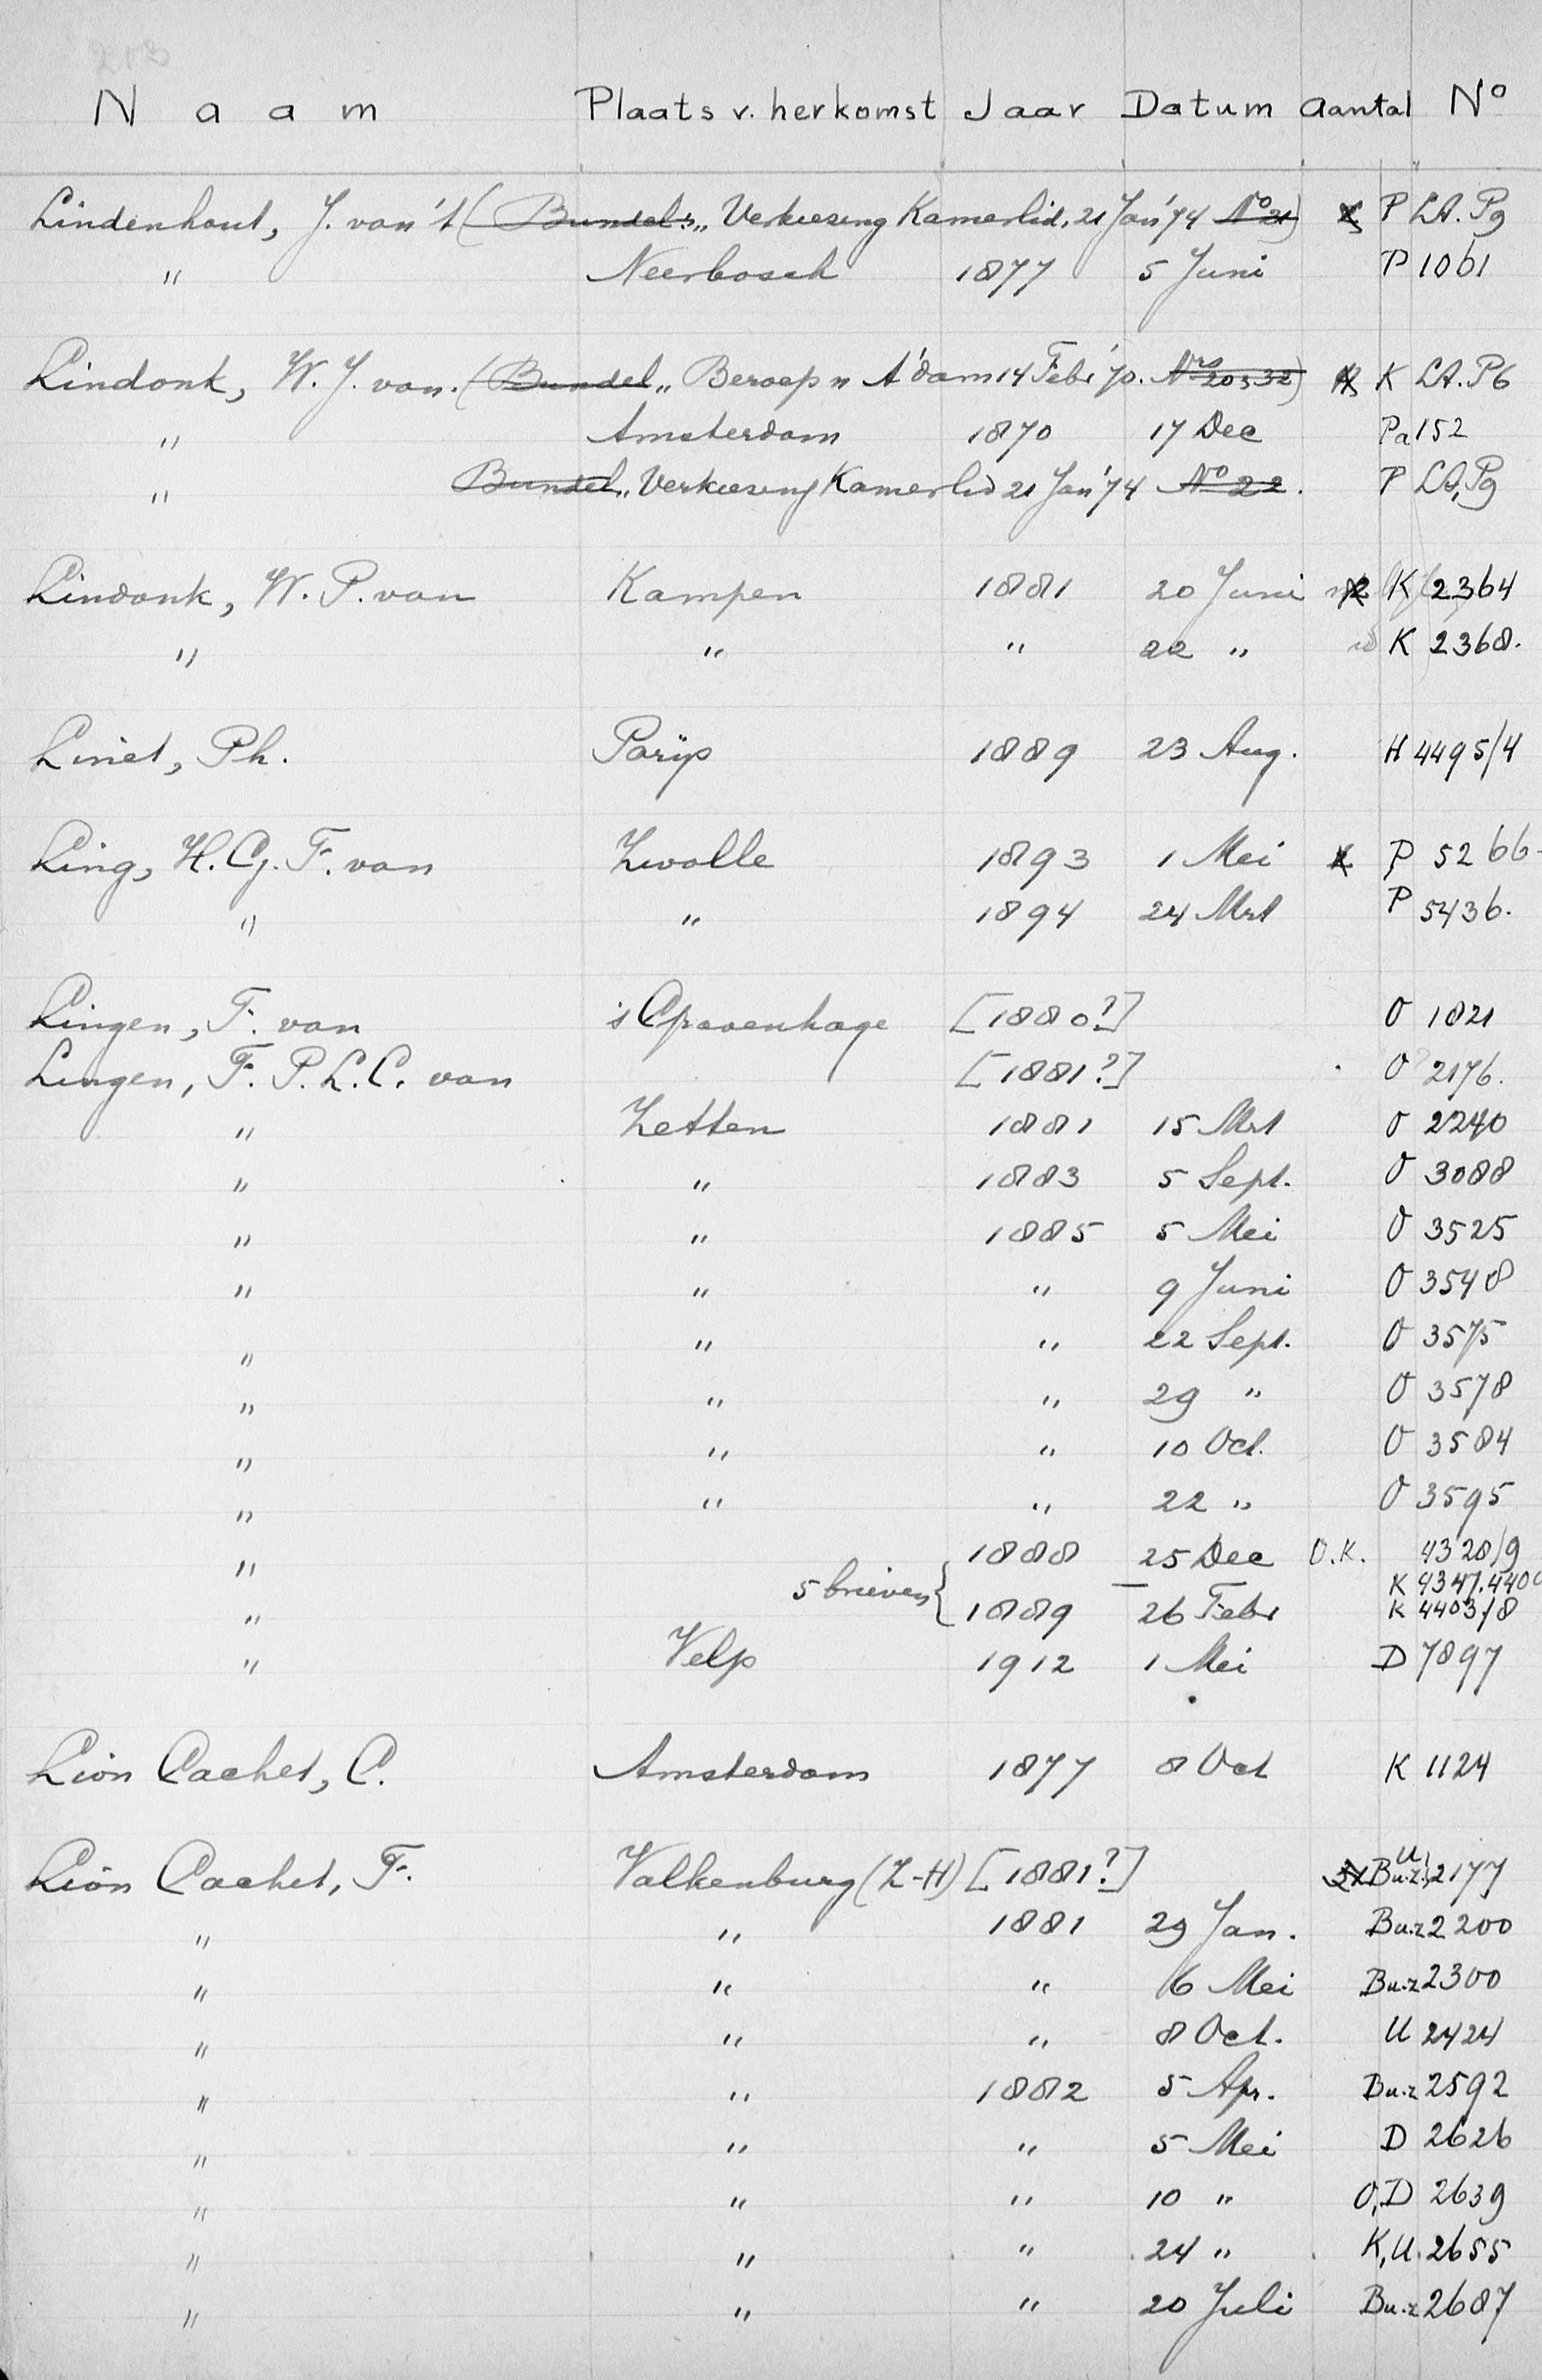 203
Naam Plaats v. herkomst Jaar Datum Aantal No
Lindenhout, J. van 't (Bundel „Verkiezing Kamerlid, 21 Jan '74 No 21) P LA. P9
" Neerbosch 1877 5 Juni P 1061
Lindonk, W. J. van. (Bundel „Beroep" A'dam 14 Febr '70. Nrs 20 32) K LA. P6
" Amsterdam 1870 17 Dec Pa 152
" Bundel „Verkiezing Kamerlid 21 Jan '74 No 22. P LA, P9
Lindonk, W. P. van Kampen 1881 20 Juni K 2364
" " " 22 " K 2368.
Linet, Ph. Parijs 1889 23 Aug. H 4495/4
Ling, H. G. F. van Zwolle 1893 1 Mei P 5266-
" " 1894 24 Mrt P 5436.
Lingen, F. van 's Gravenhage [1880?] O 1821
Lingen, F. P. L. C. van [1881?] O 2176.
" Zetten 1881 15 Mrt O 2240
" " 1883 5 Sept. O 3088
" " 1885 5 Mei O 3525
" " " 9 Juni O 3548
" " " 22 Sept. O 3575
" " " 29 " O 3578
" " " 10 Oct. O 3584
" " " 22 " O 3595
" 1888 25 Dec O.K. 4328/9
5 brieven { — K 4347. 4400
" 1889 26 Febr K 4403/8
" Velp 1912 1 Mei D 7897
Lion Cachet, C. Amsterdam 1877 8 Oct K 1124
Lion Cachet, F. Valkenburg (Z-H) [1881?] Bu.z. U 2177
" " 1881 29 Jan. Bu.z 2200
" " " 6 Mei Bu.z 2300
" " " 8 Oct. U 2424
" " 1882 5 Apr. Bu.z 2592
" " " 5 Mei D 2626
" " " 10 " O, D 2639
" " " 24 " K, U. 2655
" " " 20 Juli Bu.z 2687